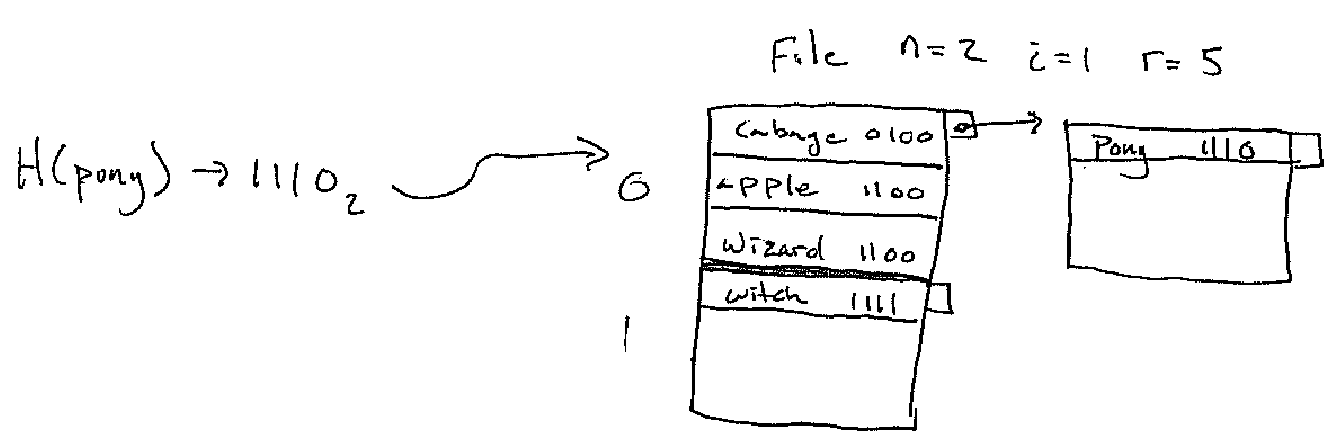 File n=2 i=1 r=5
H(pony) → 1110₂
0
Cabage 0100
apple 1100
Wizard 1100
Pony 1110
1
witch 1111